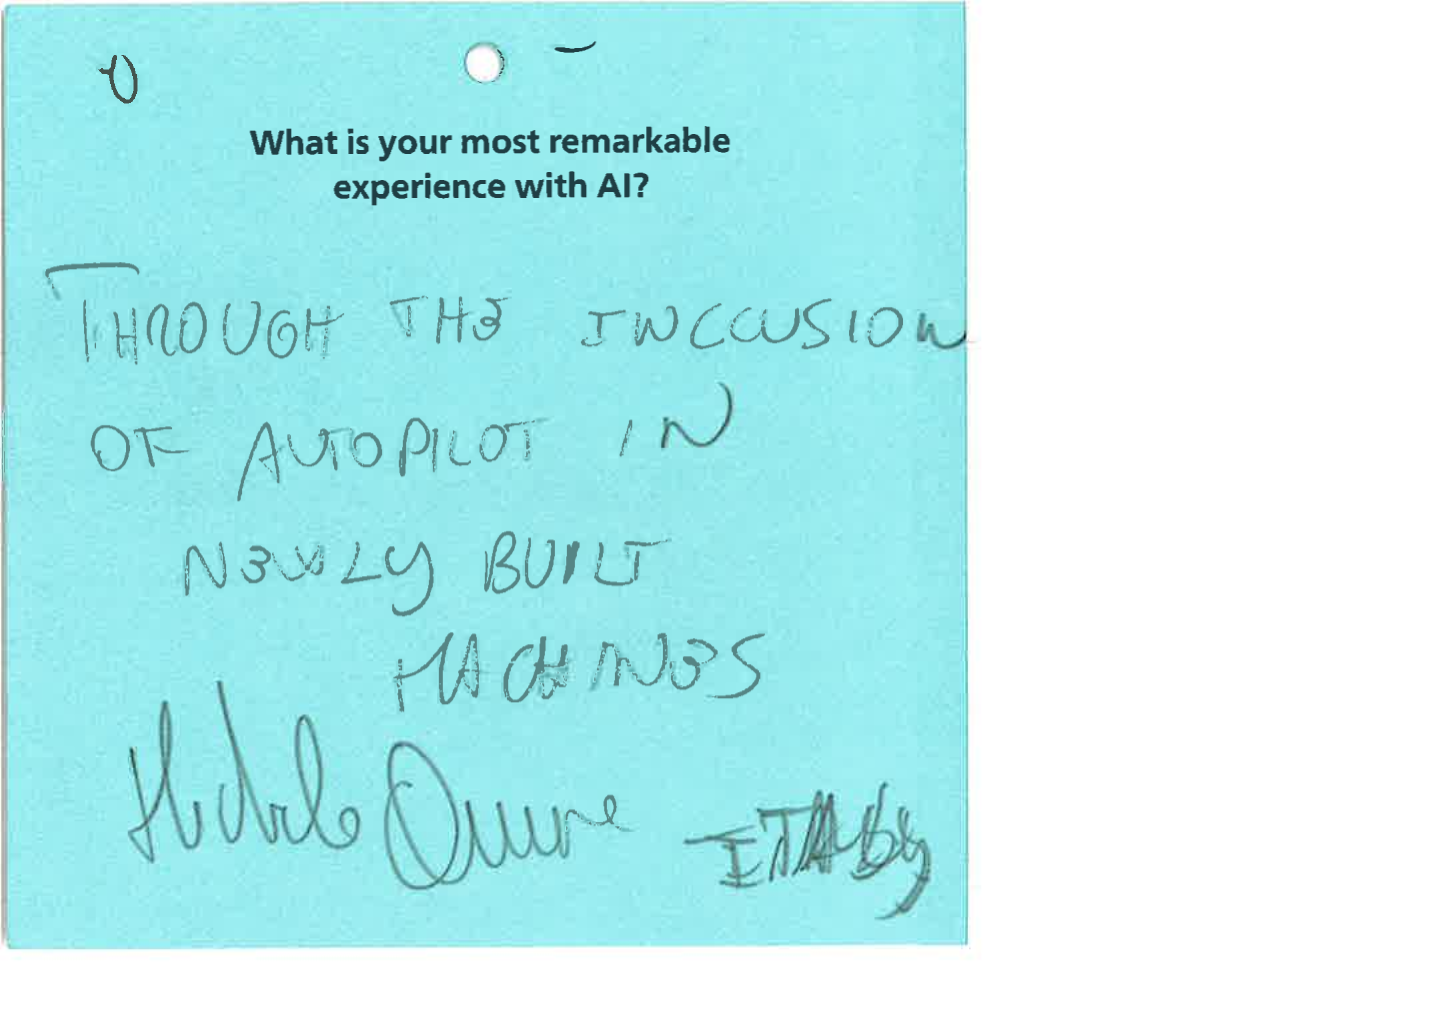 What is your most remarkable
experience with AI?
THROUGH THE INCLUSION
OF AUTOPILOT IN
NEWLY BUILT
MACHINES
ITALY